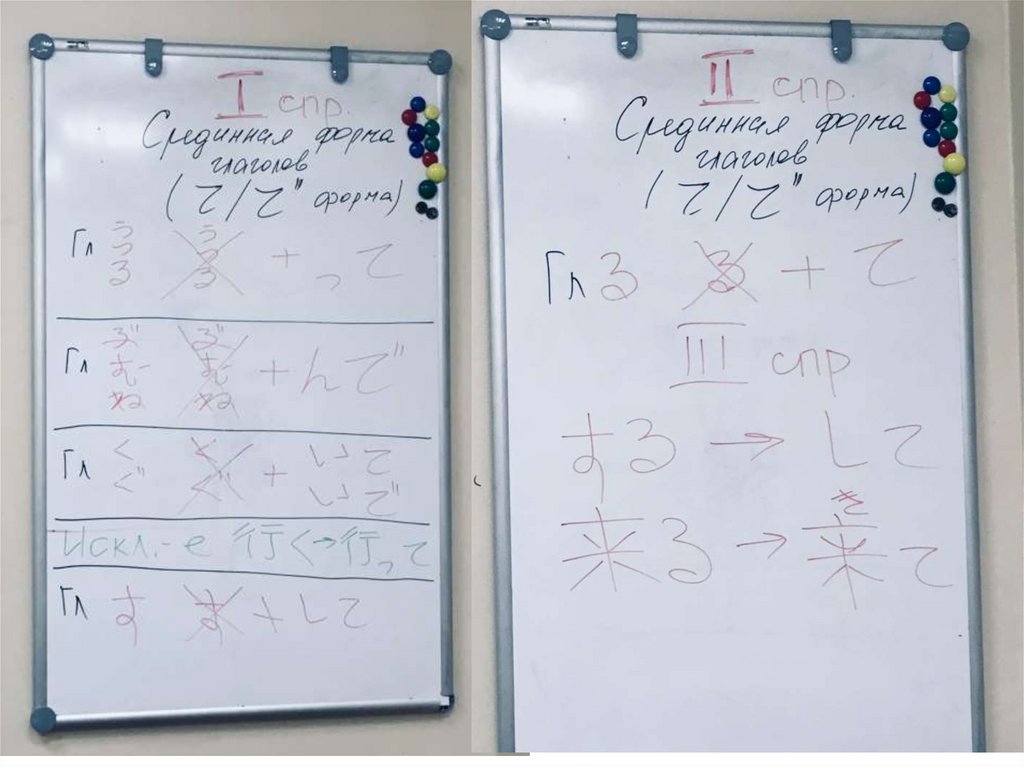 I спр.
Срединная форма
глаголов
(て/で форма)
Гл う う + って
つ つ
る る
Гл ぶ ぶ + んで
む む
ぬ ぬ
Гл く く + いて
ぐ ぐ いで
Искл.-е 行く→行って
Гл す す + して
II спр.
Срединная форма
глаголов
(て/で форма)
Гл る る + て
III спр
する → して
き
来る → 来て